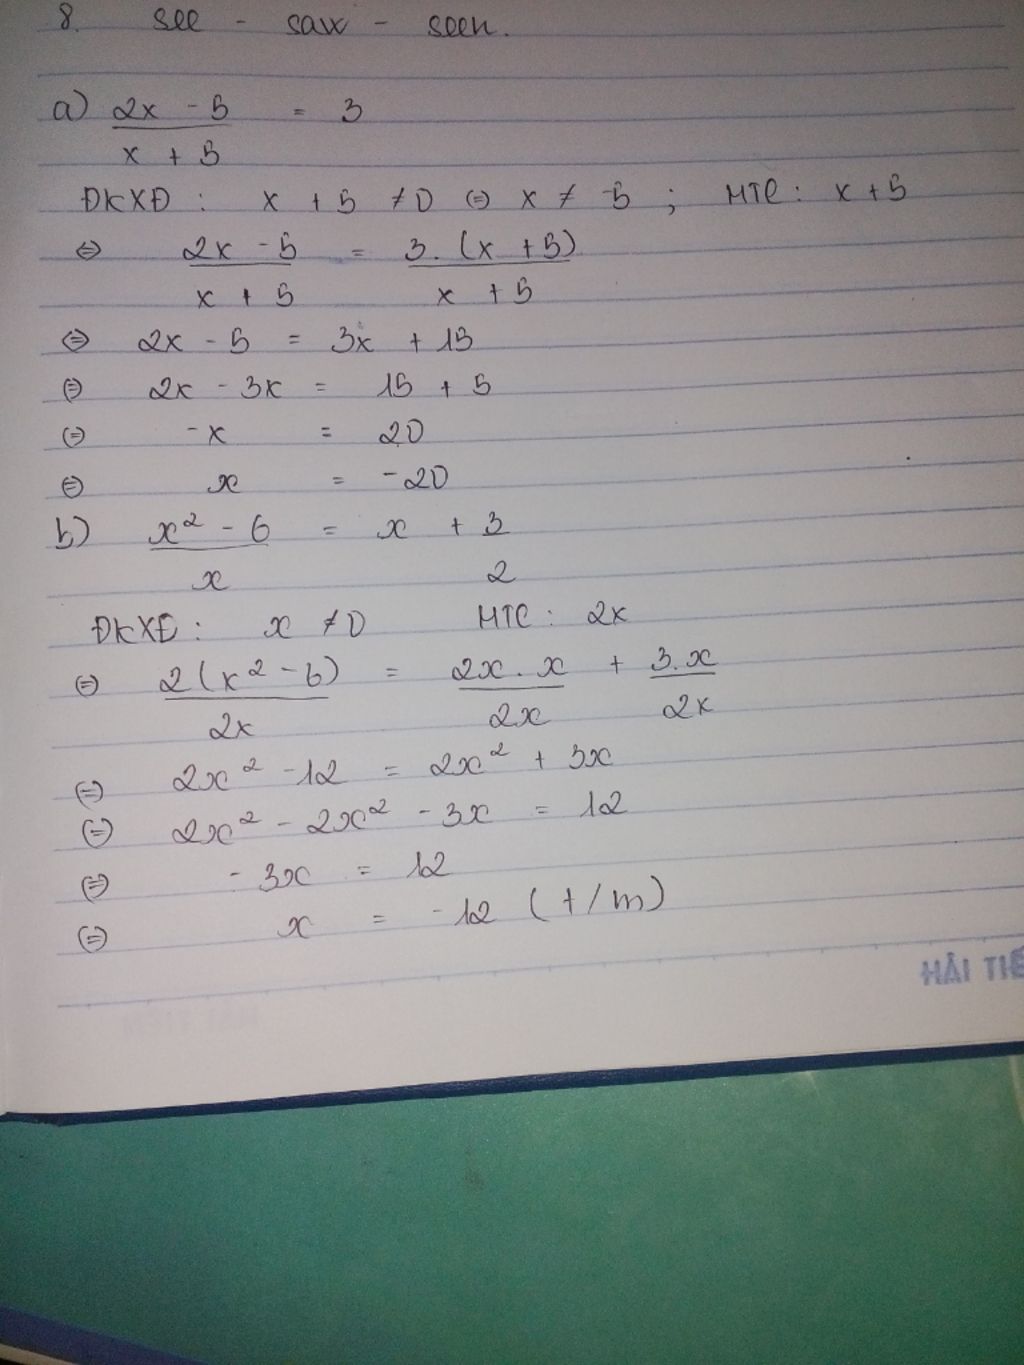 8. see - saw - seen.
a) 2x - 5 = 3
x + 5
ĐKXĐ : x + 5 ≠ 0 ⇔ x ≠ -5 ; MTC : x + 5
⇔ 2x - 5 = 3. (x + 5)
x + 5 x + 5
⇔ 2x - 5 = 3x + 15
⇔ 2x - 3x = 15 + 5
⇔ -x = 20
⇔ x = -20
b) x² - 6 = x + 3
x 2
ĐKXĐ : x ≠ 0 MTC : 2x
⇔ 2(x² - 6) = 2x . x + 3.x
2x 2x 2x
⇔ 2x² - 12 = 2x² + 3x
⇔ 2x² - 2x² - 3x = 12
⇔ - 3x = 12
⇔ x = -12 (t/m)
HẢI TIẾ